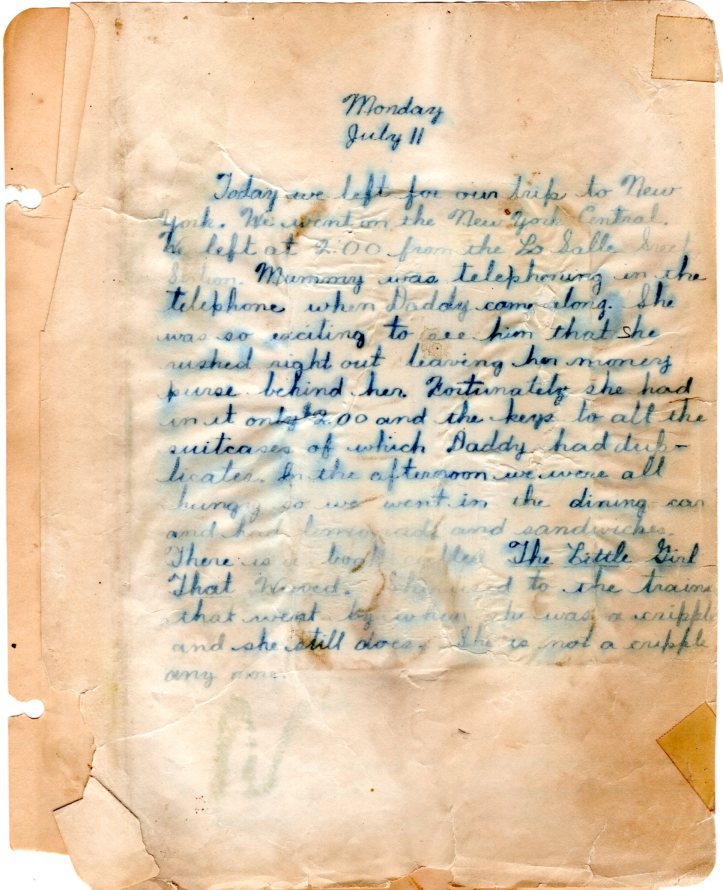 Monday
July 11
Today we left for our trip to New
York. We went on the New York Central.
We left at 2:00 from the La Salle Street
Station. Mummy was telephoning in the
telephone when Daddy came along. She
was so exciting to see him that she
rushed right out leaving her money
purse behind her. Fortunately she had
in it only $2.00 and the keys to all the
suitcases of which Daddy had dup-
licates. In the afternoon we were all
hungry so we went in the dining car
and had lemon ade and sandwiches.
There is a book called The Little Girl
That Waved. She to the trains
that went by when she was a cripple
and she still does. She is not a cripple
any more.